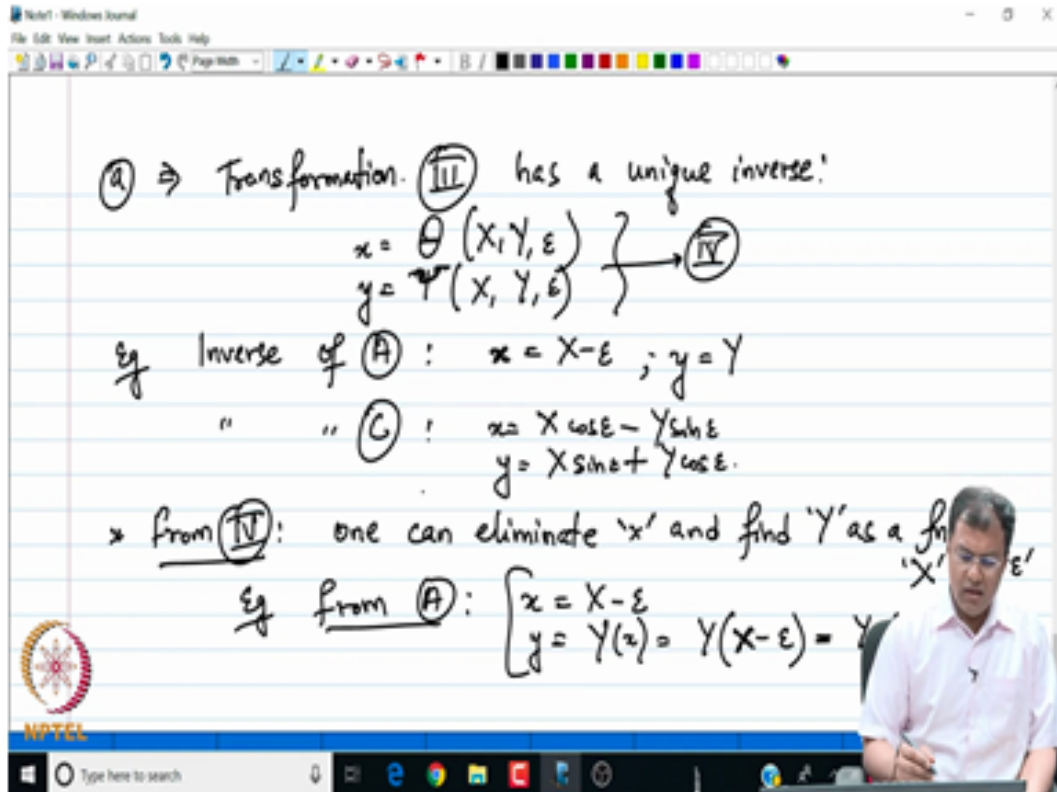 Note1 - Windows Journal
File Edit View Insert Actions Tools Help
Page Width
B I
(a) ⇒ Transformation. (III) has a unique inverse:
x = θ (X, Y, ε)
y = Ψ (X, Y, ε) } → (IV)
Eg Inverse of (A) : x = X-ε ; y = Y
" " (C) : x = X cosε - Y sinε
y = X sinε + Y cosε.
* from (IV): one can eliminate 'x' and find 'Y' as a fn
'X' ε'
Eg from (A) : x = X-ε
y = Y(x) = Y(X-ε) = Y
NPTEL
Type here to search